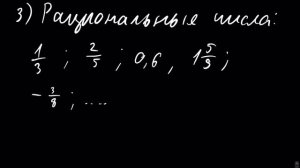 3) Рациональные числа:
1/3 ; 2/5 ; 0,6 , 1 5/9 ;
- 3/8 ; ....